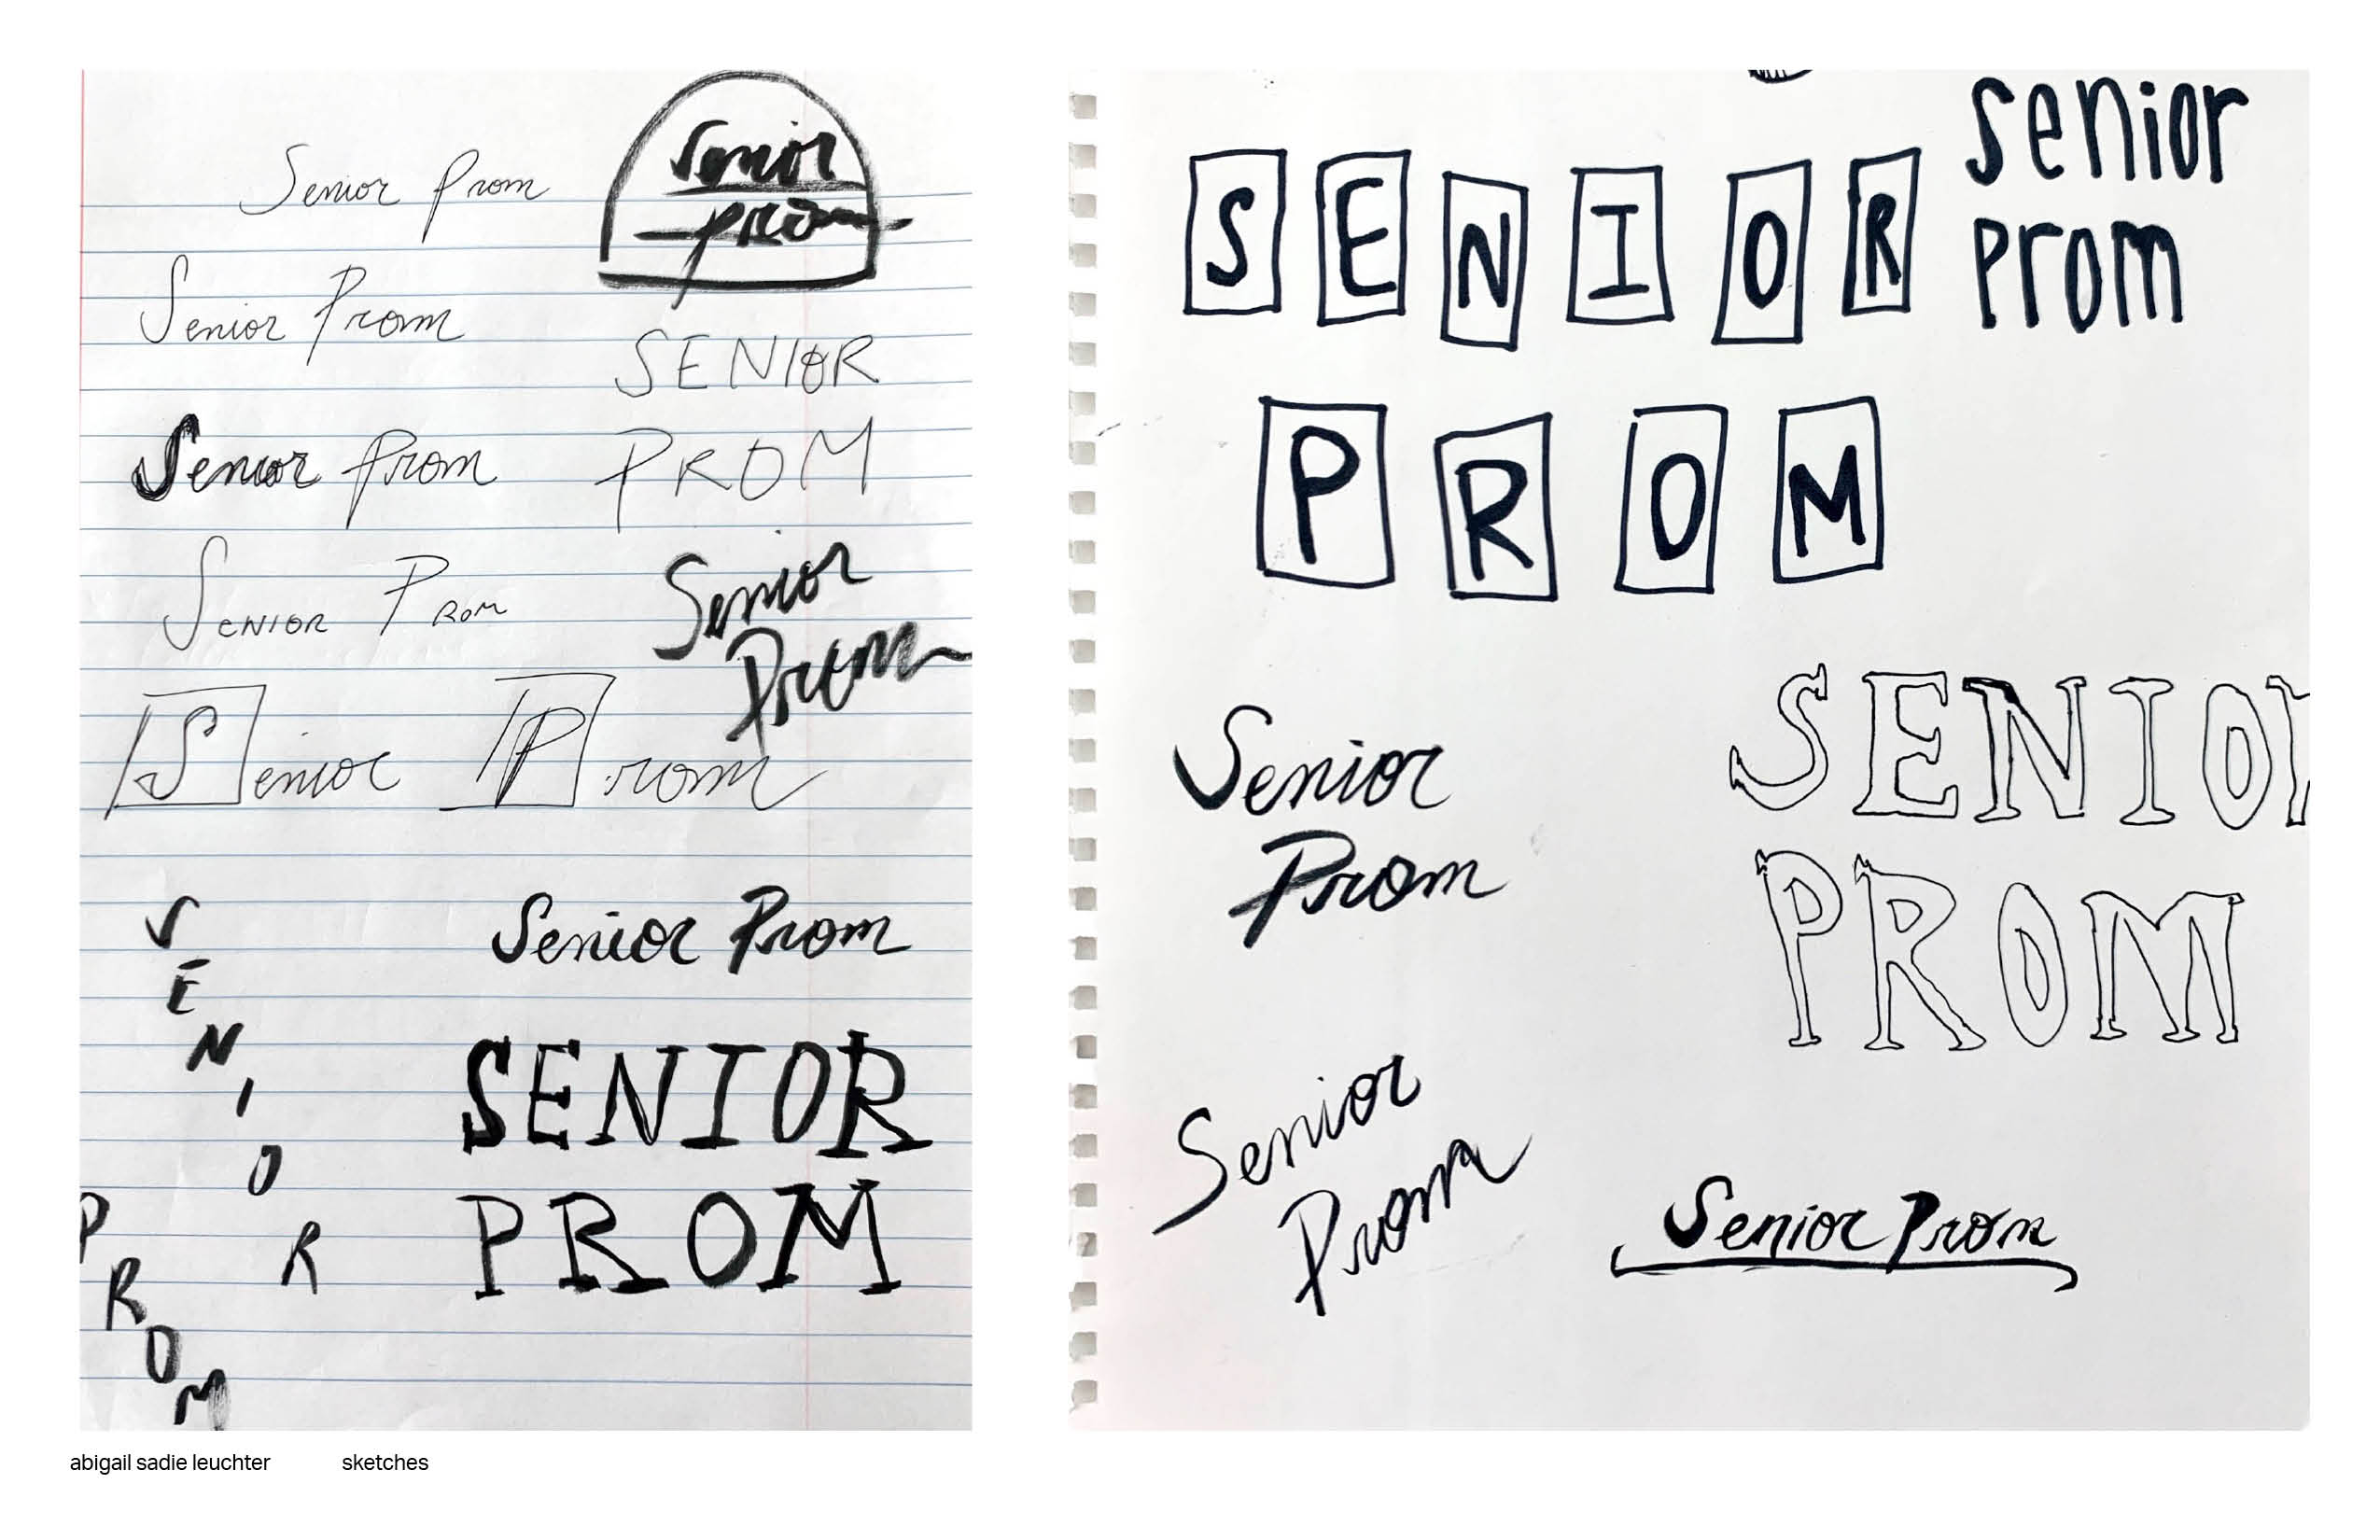 Senior Prom
Senior
prom
Senior Prom
SENIOR
PROM
Senior Prom
Senior Prom
Senior
Prom
Senior Prom
SENIOR
PROM
Senior Prom
SENIOR
PROM
senior
prom
SENIOR
PROM
Senior
Prom
SENIOR
PROM
Senior
Prom
Senior Prom
abigail sadie leuchter sketches